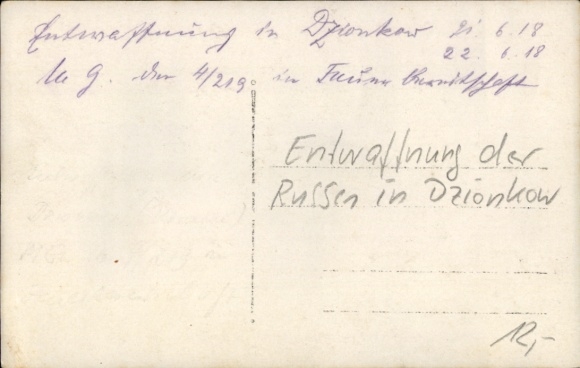 Entwaffnung in Dzionkow 21. 6. 18
22. 6. 18
M G. der 4/219. in Feuer Bereitschaft
Entwaffnung der
Russen in Dzionkow
12,-